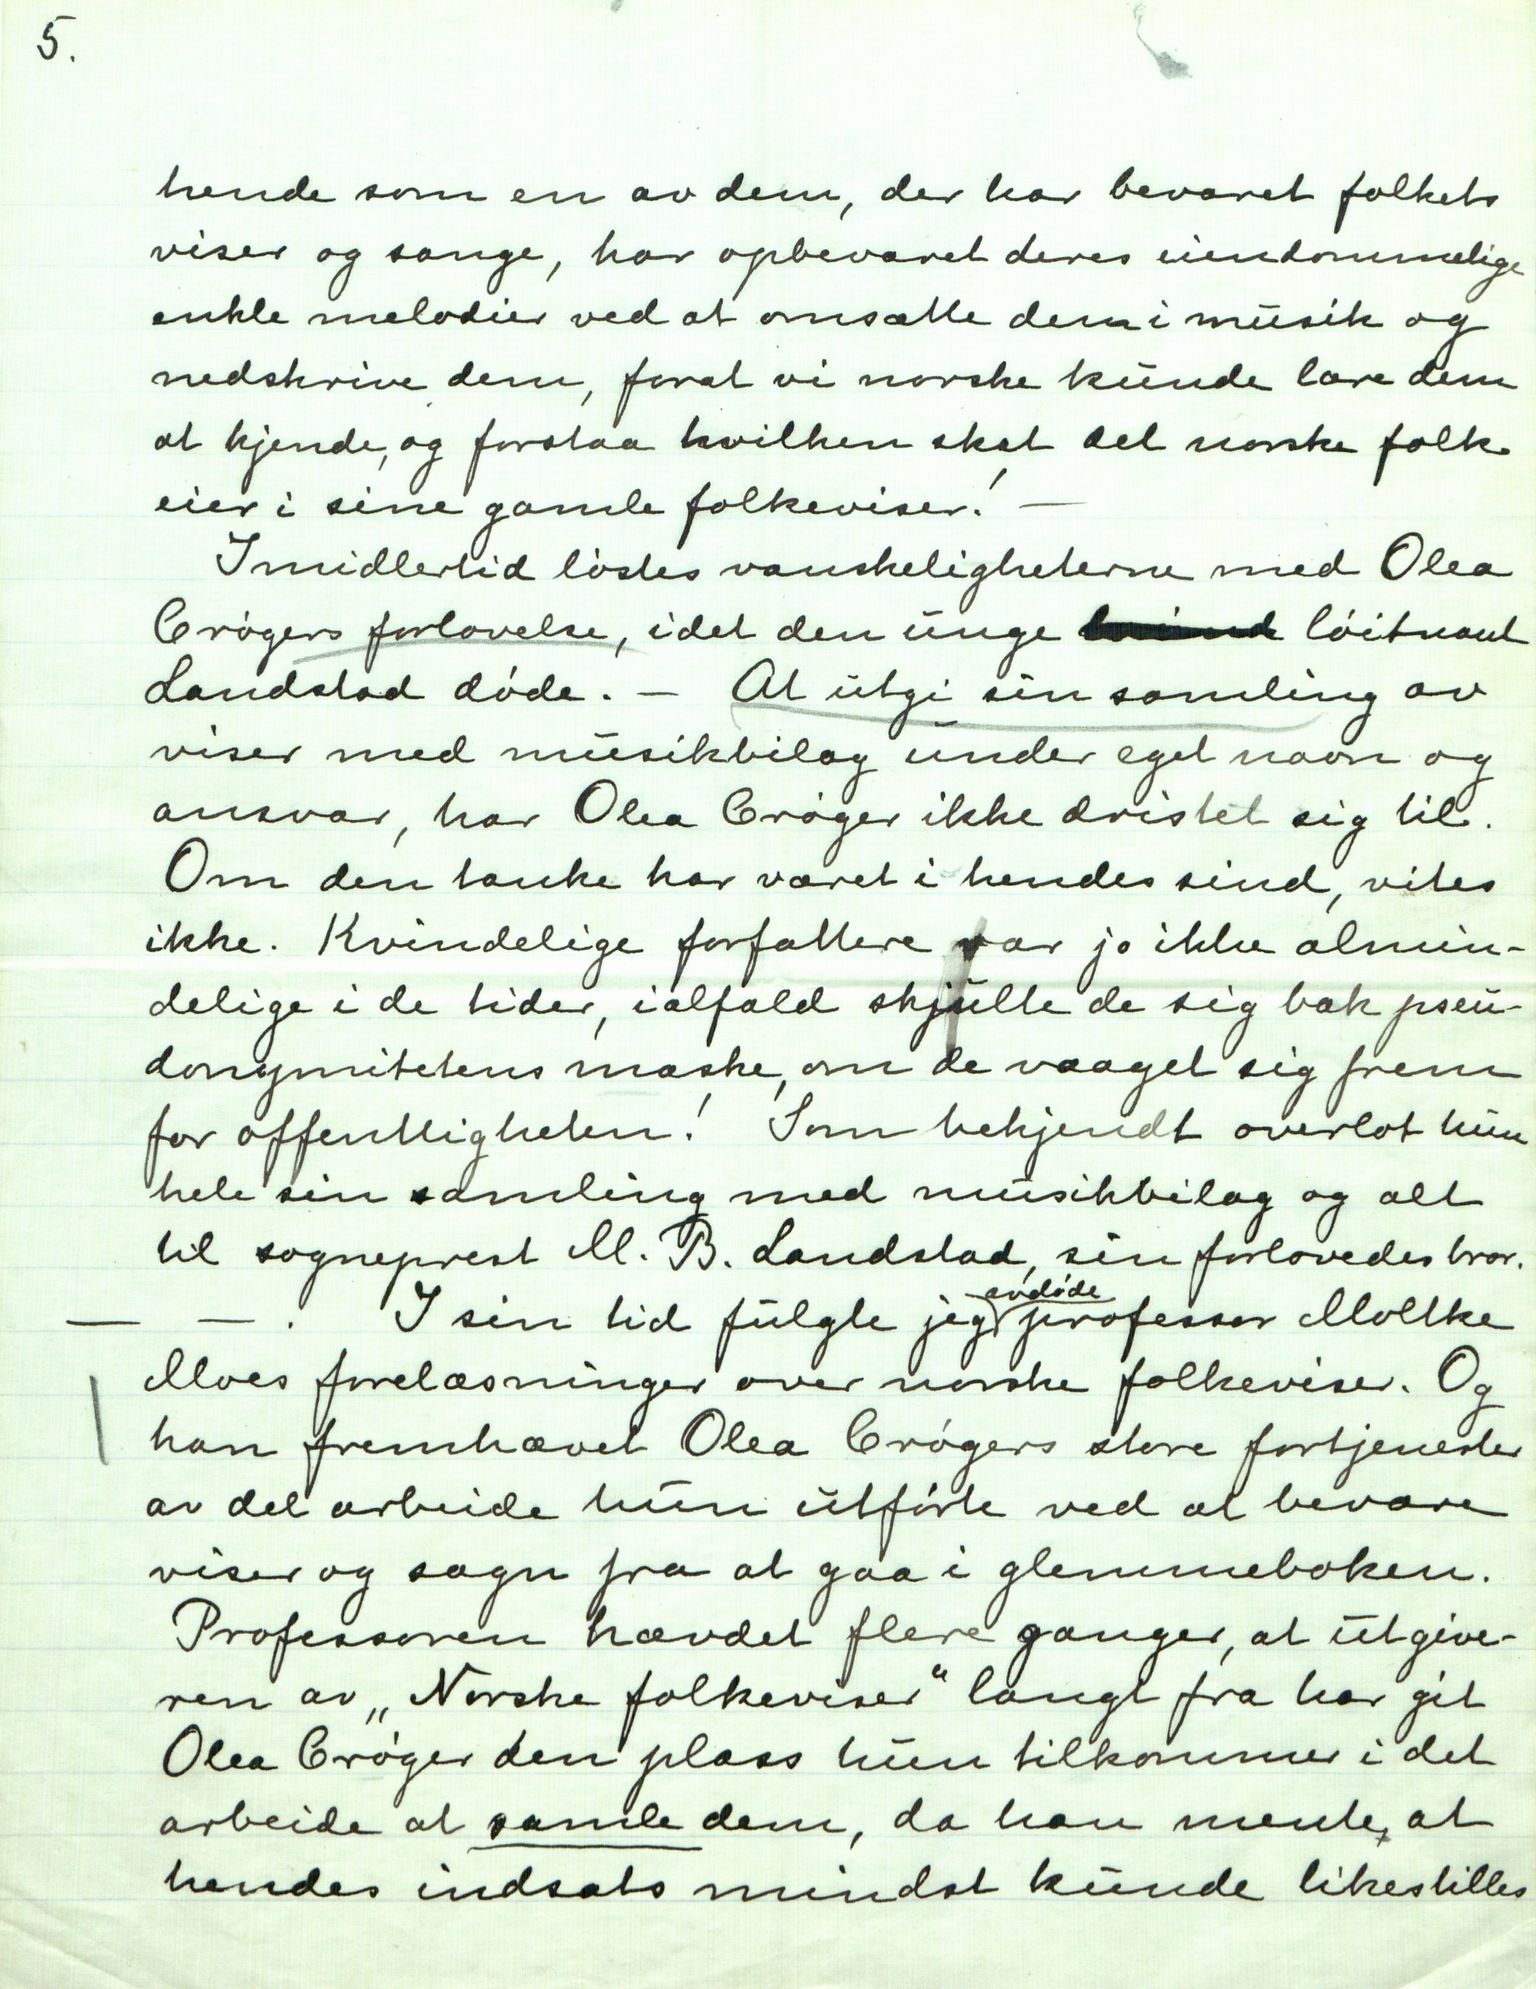 5.
hende som en av dem, der har bevaret folkets
viser og sange, har opbevaret deres eiendommelige
enkle melodier ved at omsætte dem i musik og
nedskrive dem, forat vi norske kunde lære dem
at kjende, og forstaa hvilken skat det norske folk
eier i sine gamle folkeviser! —
Imidlertid löstes vanskeligheterne med Olea
Crögers forlovelse, idet den unge löitnant
Landstad döde. — At utgi sin samling av
viser med musikbilag under eget navn og
ansvar, har Olea Cröger ikke dristet sig til.
Om den tanke har været i hendes sind, vites
ikke. Kvindelige forfattere var jo ikke almin-
delige i de tider, ialfald skjulte de sig bak pseu-
donymitetens maske, om de vaaget sig frem
for offentligheten! Som bekjendt overlot hun
hele sin samling med musikbilag og alt
til sogneprest M. B. Landstad, sin forlovedes bror.
— — . I sin tid fulgte jeg avdöde professor Moltke
Moes forelæsninger over norske folkeviser. Og
han fremhævet Olea Crögers store fortjenester
av det arbeide hun utförte ved at bevare
viser og sagn fra at gaa i glemmeboken.
Professoren hævdet flere ganger, at utgive-
ren av „Norske folkeviser“ langt fra har git
Olea Cröger den plass hun tilkommer i det
arbeide at samle dem, da han mente, at
hendes indsats mindst kunde likestilles